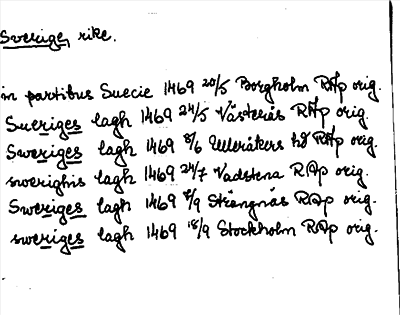 Sverige, rike.
in partibus Suecie 1469 20/5 Borgholm RAp orig.
Sueriges lagh 1469 24/5 Västerås RAp orig.
Sweriges lagh 1469 8/6 Ulleråkers hd RAp orig.
swerighis lagh 1469 24/7 Vadstena RAp orig.
Sweriges lagh 1469 /9 Strängnäs RAp orig.
sweriges lagh 1469 18/9 Stockholm RAp orig.